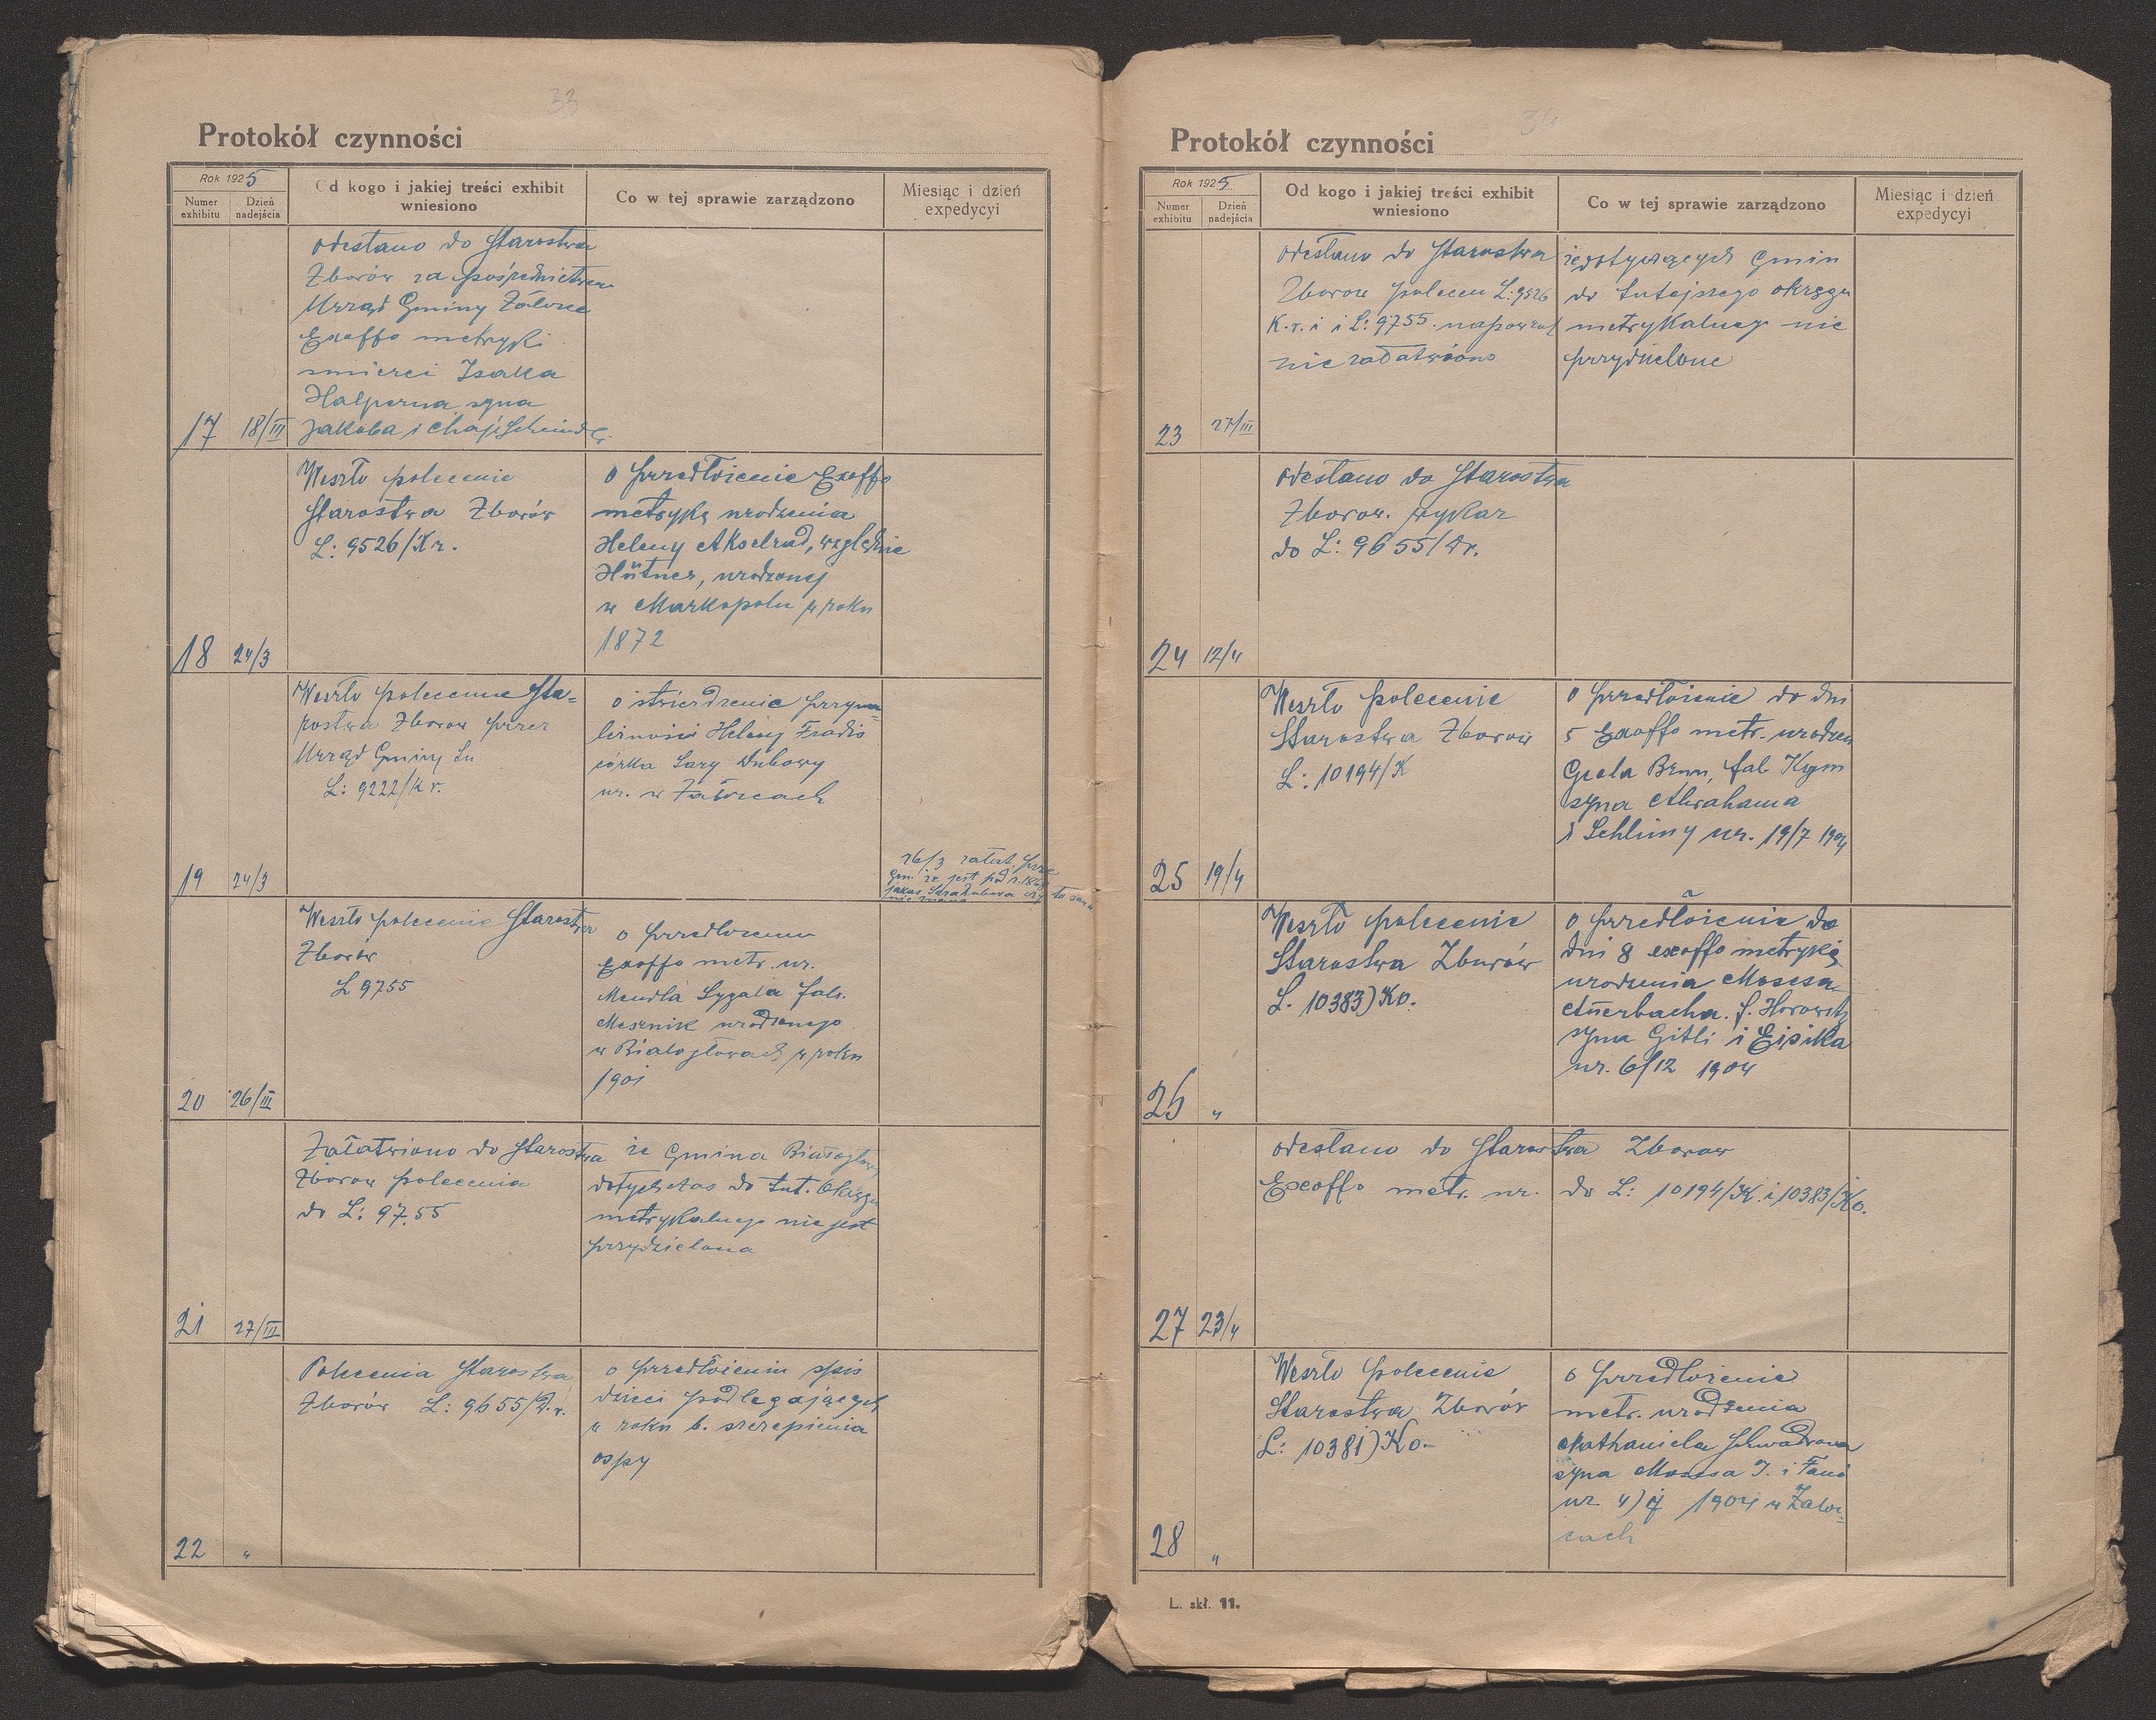 33
Protokół czynności
Rok 1925
Numer exhibitu
Dzień nadejścia
Od kogo i jakiej treści exhibit
wniesiono
Co w tej sprawie zarządzono
Miesiąc i dzień
expedycyi
odesłano do Starostwa
Zborów za pośrednictwem
Urząd Gminy Załoźce
Exoffo metryki
smierci Isaka
Halperna syna
17 18/III Jakóba i Chaji Scheindli
Weszło polecenie
Starostwa Zborów
L: 9526/Kr.
o przedłożenie Exoffo
metrykę urodzenia
Heleny Akselrad, względnie
Hütner, urodzonej
w Markopolu w roku
1872
18 24/3
Weszło polecenie Sta-
rostwa Zborow przez
Urząd Gminy
L: 9222/Kr.
o stwierdzenie przyna-
leżności Heleny Fradis
córka Sary Dubowy
ur. w Załoźcach
19 24/3
26/3 załat.
Weszło polecenie Starostwa
Zborów
L 9755
o przedłozenie
Exoffo metr. ur.
Mendla Sygala fals.
Mesznik urodzonego
w Białogłowach w roku
1901
20 26/III
Załatwiono do Starostwa
Zborow polecenia
do L: 9755
że Gmina Białogłowy
dotychczas do tut. Okręgu
metrykalnego nie jest
przydzielona
21 27/III
Polecenia Starostwa
Zborów L: 9655/
o przedłożeniu spis
dzieci podlegających
w roku b. szczepienia
ospy
22 "
34
Protokół czynności
Rok 1925
Numer exhibitu
Dzień nadejścia
Od kogo i jakiej treści exhibit
wniesiono
Co w tej sprawie zarządzono
Miesiąc i dzień
expedycyi
odesłano do Starostwa
Zborow polecen L: 9526
K.r. i L: 9755. napowrot
nie załatwiono
dotyczących gmin
do tutejszego okręgu
metrykalnego nie
przydzielone
23 27/III
odesłano do Starostwa
Zborow. wykaz
do L: 9655/
24 12/4
Weszło polecenie
Starostwa Zborow
L: 10194/K
o przedłożenie do dni
5 Exoffo metr. urodzen
Brun, fals
syna Abrahama
i Schlimy ur. 19/7 1904
25 19/4
Weszło polecenie
Starostwa Zborów
L. 10383)Ko.
o przedłożenie do
dni 8 exoffo metrykę
urodzenia Mosesa
Auerbacha. f. Horowitz
syna Gitli i Eisika
ur. 6/12 1904
26 "
odesłano do Starostwa Zborow
Exoffo metr. ur. do L: 10194/K. i 10383/Ko.
27 23/4
Weszło polecenie
Starostwa Zborów
L: 10381)Ko-
o przedłożenie
metr. urodzenia
Nathaniela Schwadrona
syna Mosesa J. i Fani
ur 1904 w Załoź-
cach
28 "
L. skł. 11.